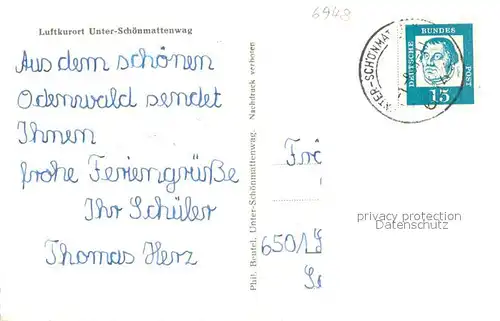 6948
Luftkurort Unter-Schönmattenwag
Aus dem schönen
Odenwald sendet
Ihnen
frohe Feriengrüße
Ihr Schüler
Thomas Herz
Phil. Beutel, Unter-Schönmattenwag. Nachdruck verboten
UNTER-SCHÖNMAT
DEUTSCHE
BUNDES
POST
15
Frö
privacy protection
Datenschutz
6501